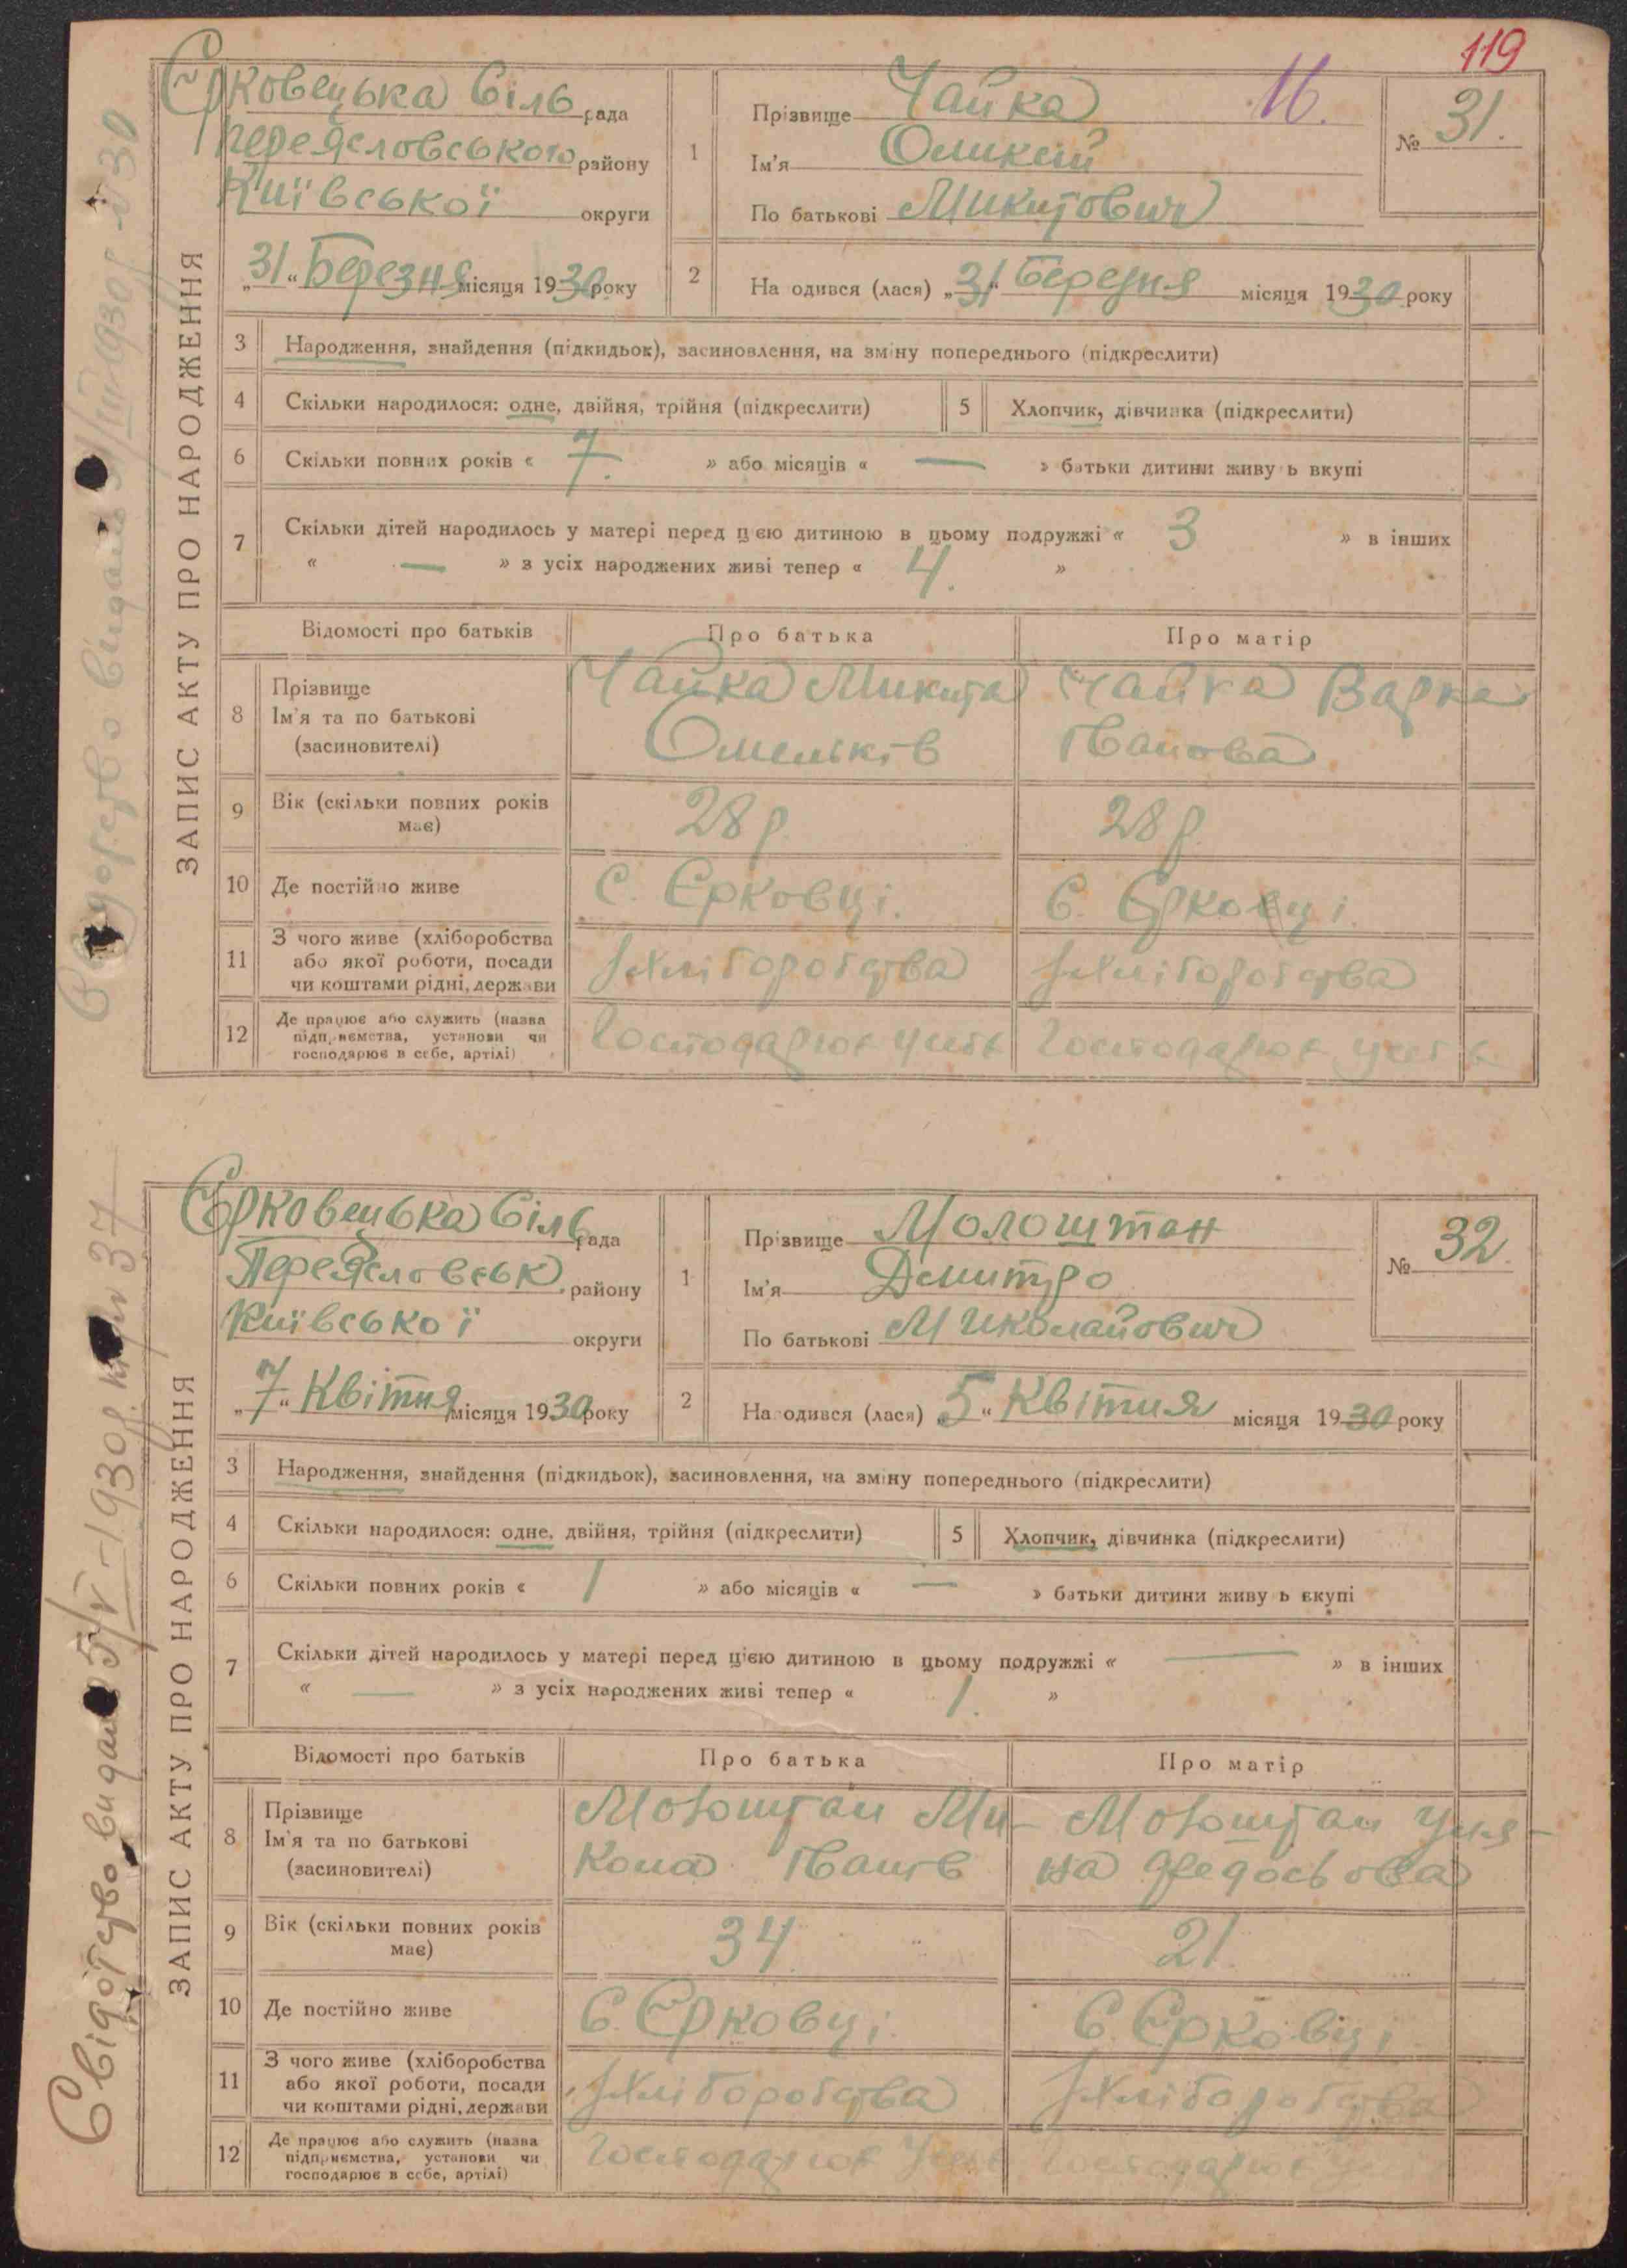 119
Єрковецька Сіль рада
Переясловського району
Київської округи
„31“ Березня місяця 1930 року
ЗАПИС АКТУ ПРО НАРОДЖЕННЯ
1
Прізвище Чайка
16.
Ім'я Омиксій
По батькові Микитович
№ 31.
2
Народився (лася) „31“ березня місяця 1930 року
3 Народження, знайдення (підкидьок), засиновлення, на зміну попереднього (підкреслити)
4 Скільки народилося: одне, двійня, трійня (підкреслити)
5 Хлопчик, дівчинка (підкреслити)
6 Скільки повних років « 7. » або місяців « — » батьки дитини живуть вкупі
7 Скільки дітей народилось у матері перед цією дитиною в цьому подружжі « 3 » в інших
« — » з усіх народжених живі тепер « 4. »
Відомості про батьків Про батька Про матір
8 Прізвище
Ім'я та по батькові
(засиновителі)
Чайка Микита
Омельків
Чайка Варка
Іванова
9 Вік (скільки повних років
має)
28 р.
28 р.
10 Де постійно живе
с. Єрковці.
с. Єрковці.
11 З чого живе (хліборобства
або якої роботи, посади
чи коштами рідні, держави
з хліборобства
з хліборобства
12 Де працює або служить (назва
підприємства, установи чи
господарює в себе, артілі)
Господарює у себе
Господарює у себе
Єрковецька Сіль рада
Переясловськ. району
Київської округи
„7“ Квітня місяця 1930 року
Свідоцтво видано 5/V-1930 р. 37
ЗАПИС АКТУ ПРО НАРОДЖЕННЯ
1
Прізвище Молоштан
Ім'я Дмитро
По батькові Миколайович
№ 32.
2
Народився (лася) „5“ Квітня місяця 1930 року
3 Народження, знайдення (підкидьок), засиновлення, на зміну попереднього (підкреслити)
4 Скільки народилося: одне, двійня, трійня (підкреслити)
5 Хлопчик, дівчинка (підкреслити)
6 Скільки повних років « 1 » або місяців « — » батьки дитини живуть вкупі
7 Скільки дітей народилось у матері перед цією дитиною в цьому подружжі « — » в інших
« — » з усіх народжених живі тепер « 1. »
Відомості про батьків Про батька Про матір
8 Прізвище
Ім'я та по батькові
(засиновителі)
Молоштан Ми-
кола Іванів
Молоштан Уля-
на Федосьова
9 Вік (скільки повних років
має)
34
21.
10 Де постійно живе
с. Єрковці.
с. Єрковці
11 З чого живе (хліборобства
або якої роботи, посади
чи коштами рідні, держави
з хліборобства
з хліборобства
12 Де працює або служить (назва
підприємства, установи чи
господарює в себе, артілі)
Господарює у себе
Господарює у себе